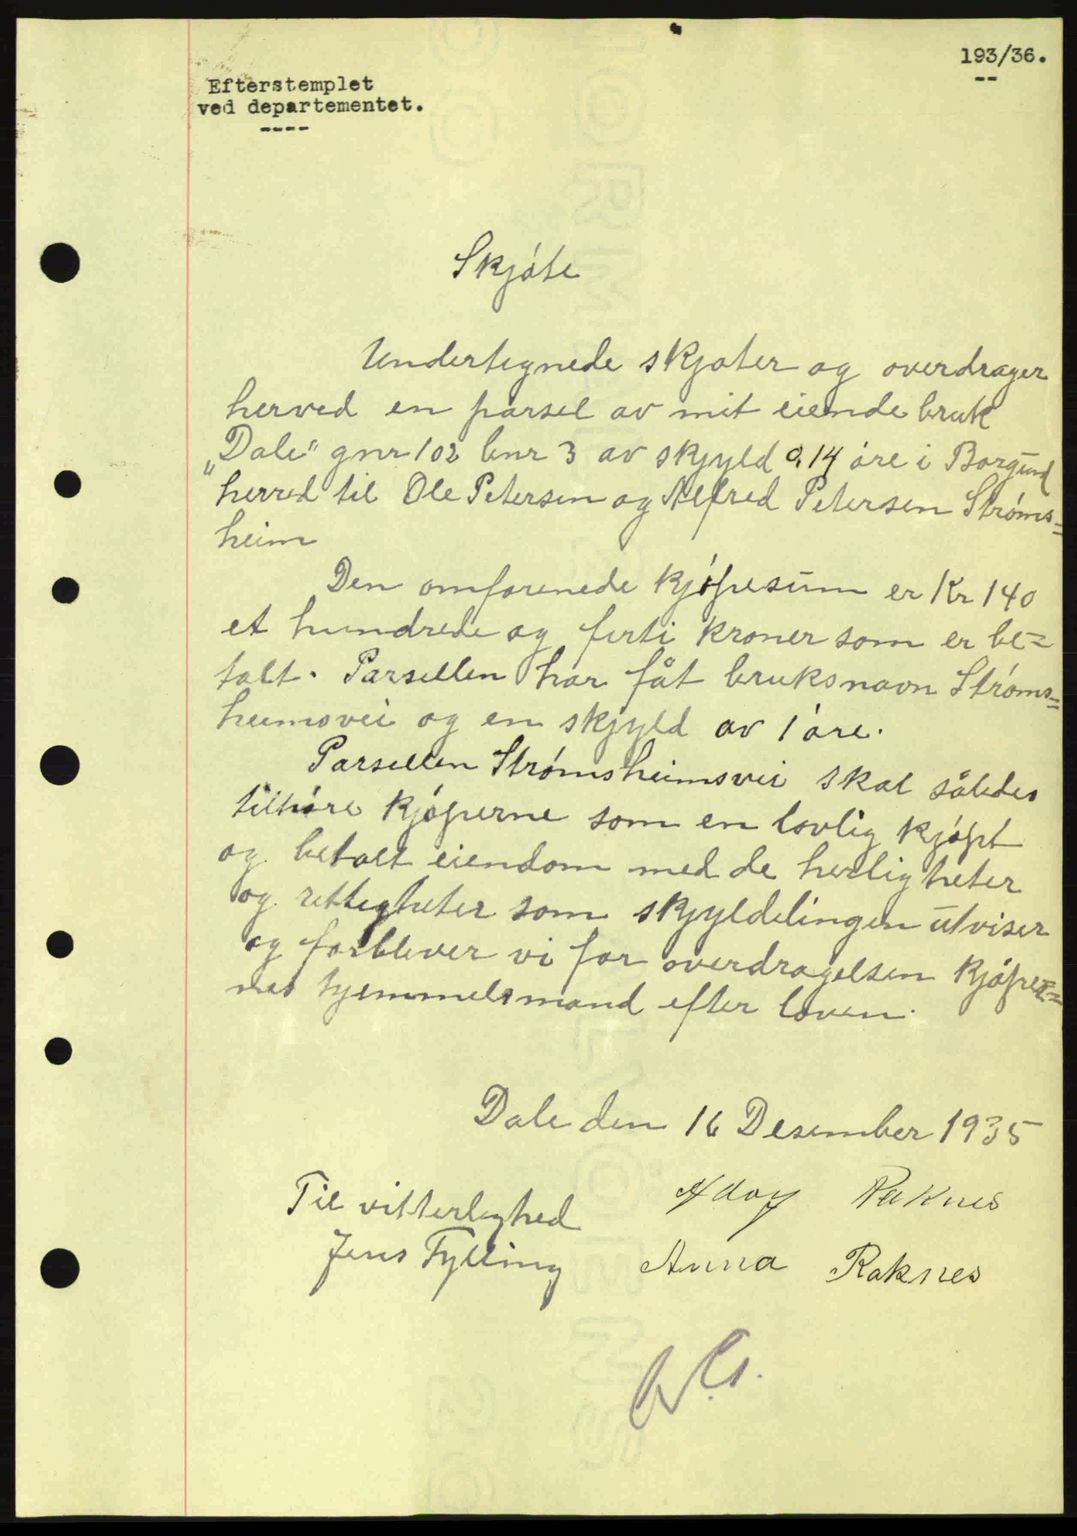 193/36.
--
Efterstemplet
ved departementet.
----
Skjöte
Undertegnede skjøter og overdrager
herved en parsel av mit eiende bruk
"Dale" gnr 102 bnr 3 av skjyld 0,14 øre i Borgund
herred til Ole Petersen og Alfred Petersen Strøms=
heim
Den omforenede kjøpesum er Kr 140
et hundrede og førti kroner som er be=
talt. Parsellen har fåt bruksnavn Strøms=
heimsvei og en skjyld av 1 øre.
Parsellen Strømsheimsvei skal således
tilhøre kjøperne som en lovlig kjøpt
og betalt eiendom med de herligheter
og rettigheter som skjyldelingen utviser
og forblever vi for overdragelsen kjøper=
nes hjemmelsmand efter loven.
Dale den 16 Desember 1935
Til vitterlighed
Jens Fylling
Raknes
Anna Raknes